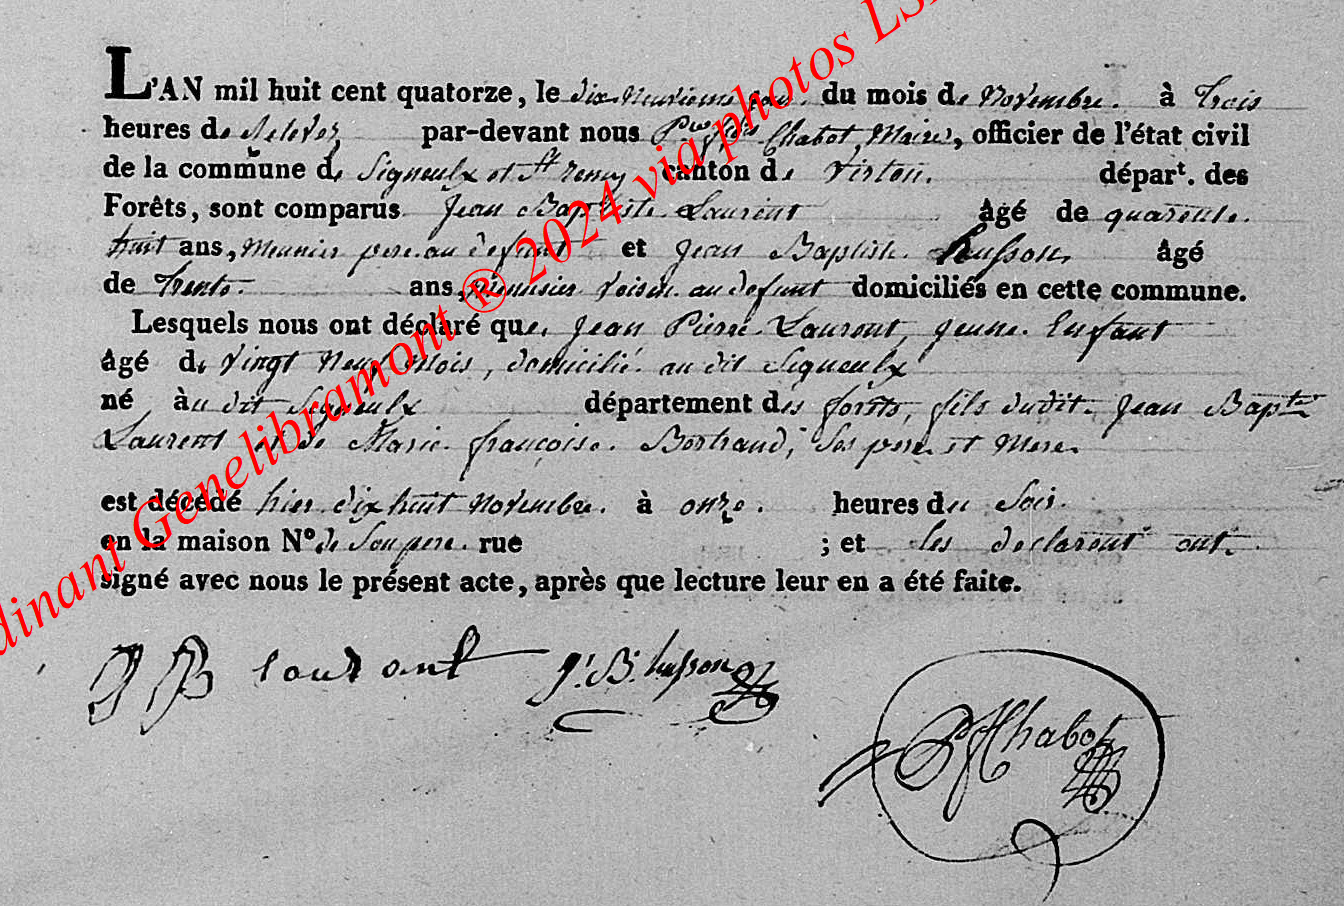 L'AN mil huit cent quatorze, le dix neuvieme jour du mois de Novembre à trois
heures de relevez par-devant nous Chabot Maire, officier de l'état civil
de la commune de Signeulx et St remy canton de Virton départ. des
Forêts, sont comparus Jean Baptiste Laurent âgé de quarente
huit ans, Meunier pere au defunt et Jean Baptiste husson âgé
de trente ans, voisin au defunt domiciliés en cette commune.
Lesquels nous ont déclaré que Jean Pierre Laurent, jeune Enfant
âgé de Vingt Neuf Mois, domicilié au dit Signeulx
né à au dit Signeulx département des forêts, fils dudit Jean Bapte
Laurent et de Marie françoise Bertrand, Ses pere et Mere
est décédé hier dix huit Novembre à onze heures du Soir
en la maison N° de Son pere rue ; et les declarent ont
signé avec nous le présent acte, après que lecture leur en a été faite.
J B laurent J. B. husson
Chabot
dinant Genelibramont ® 2024 via photos LS